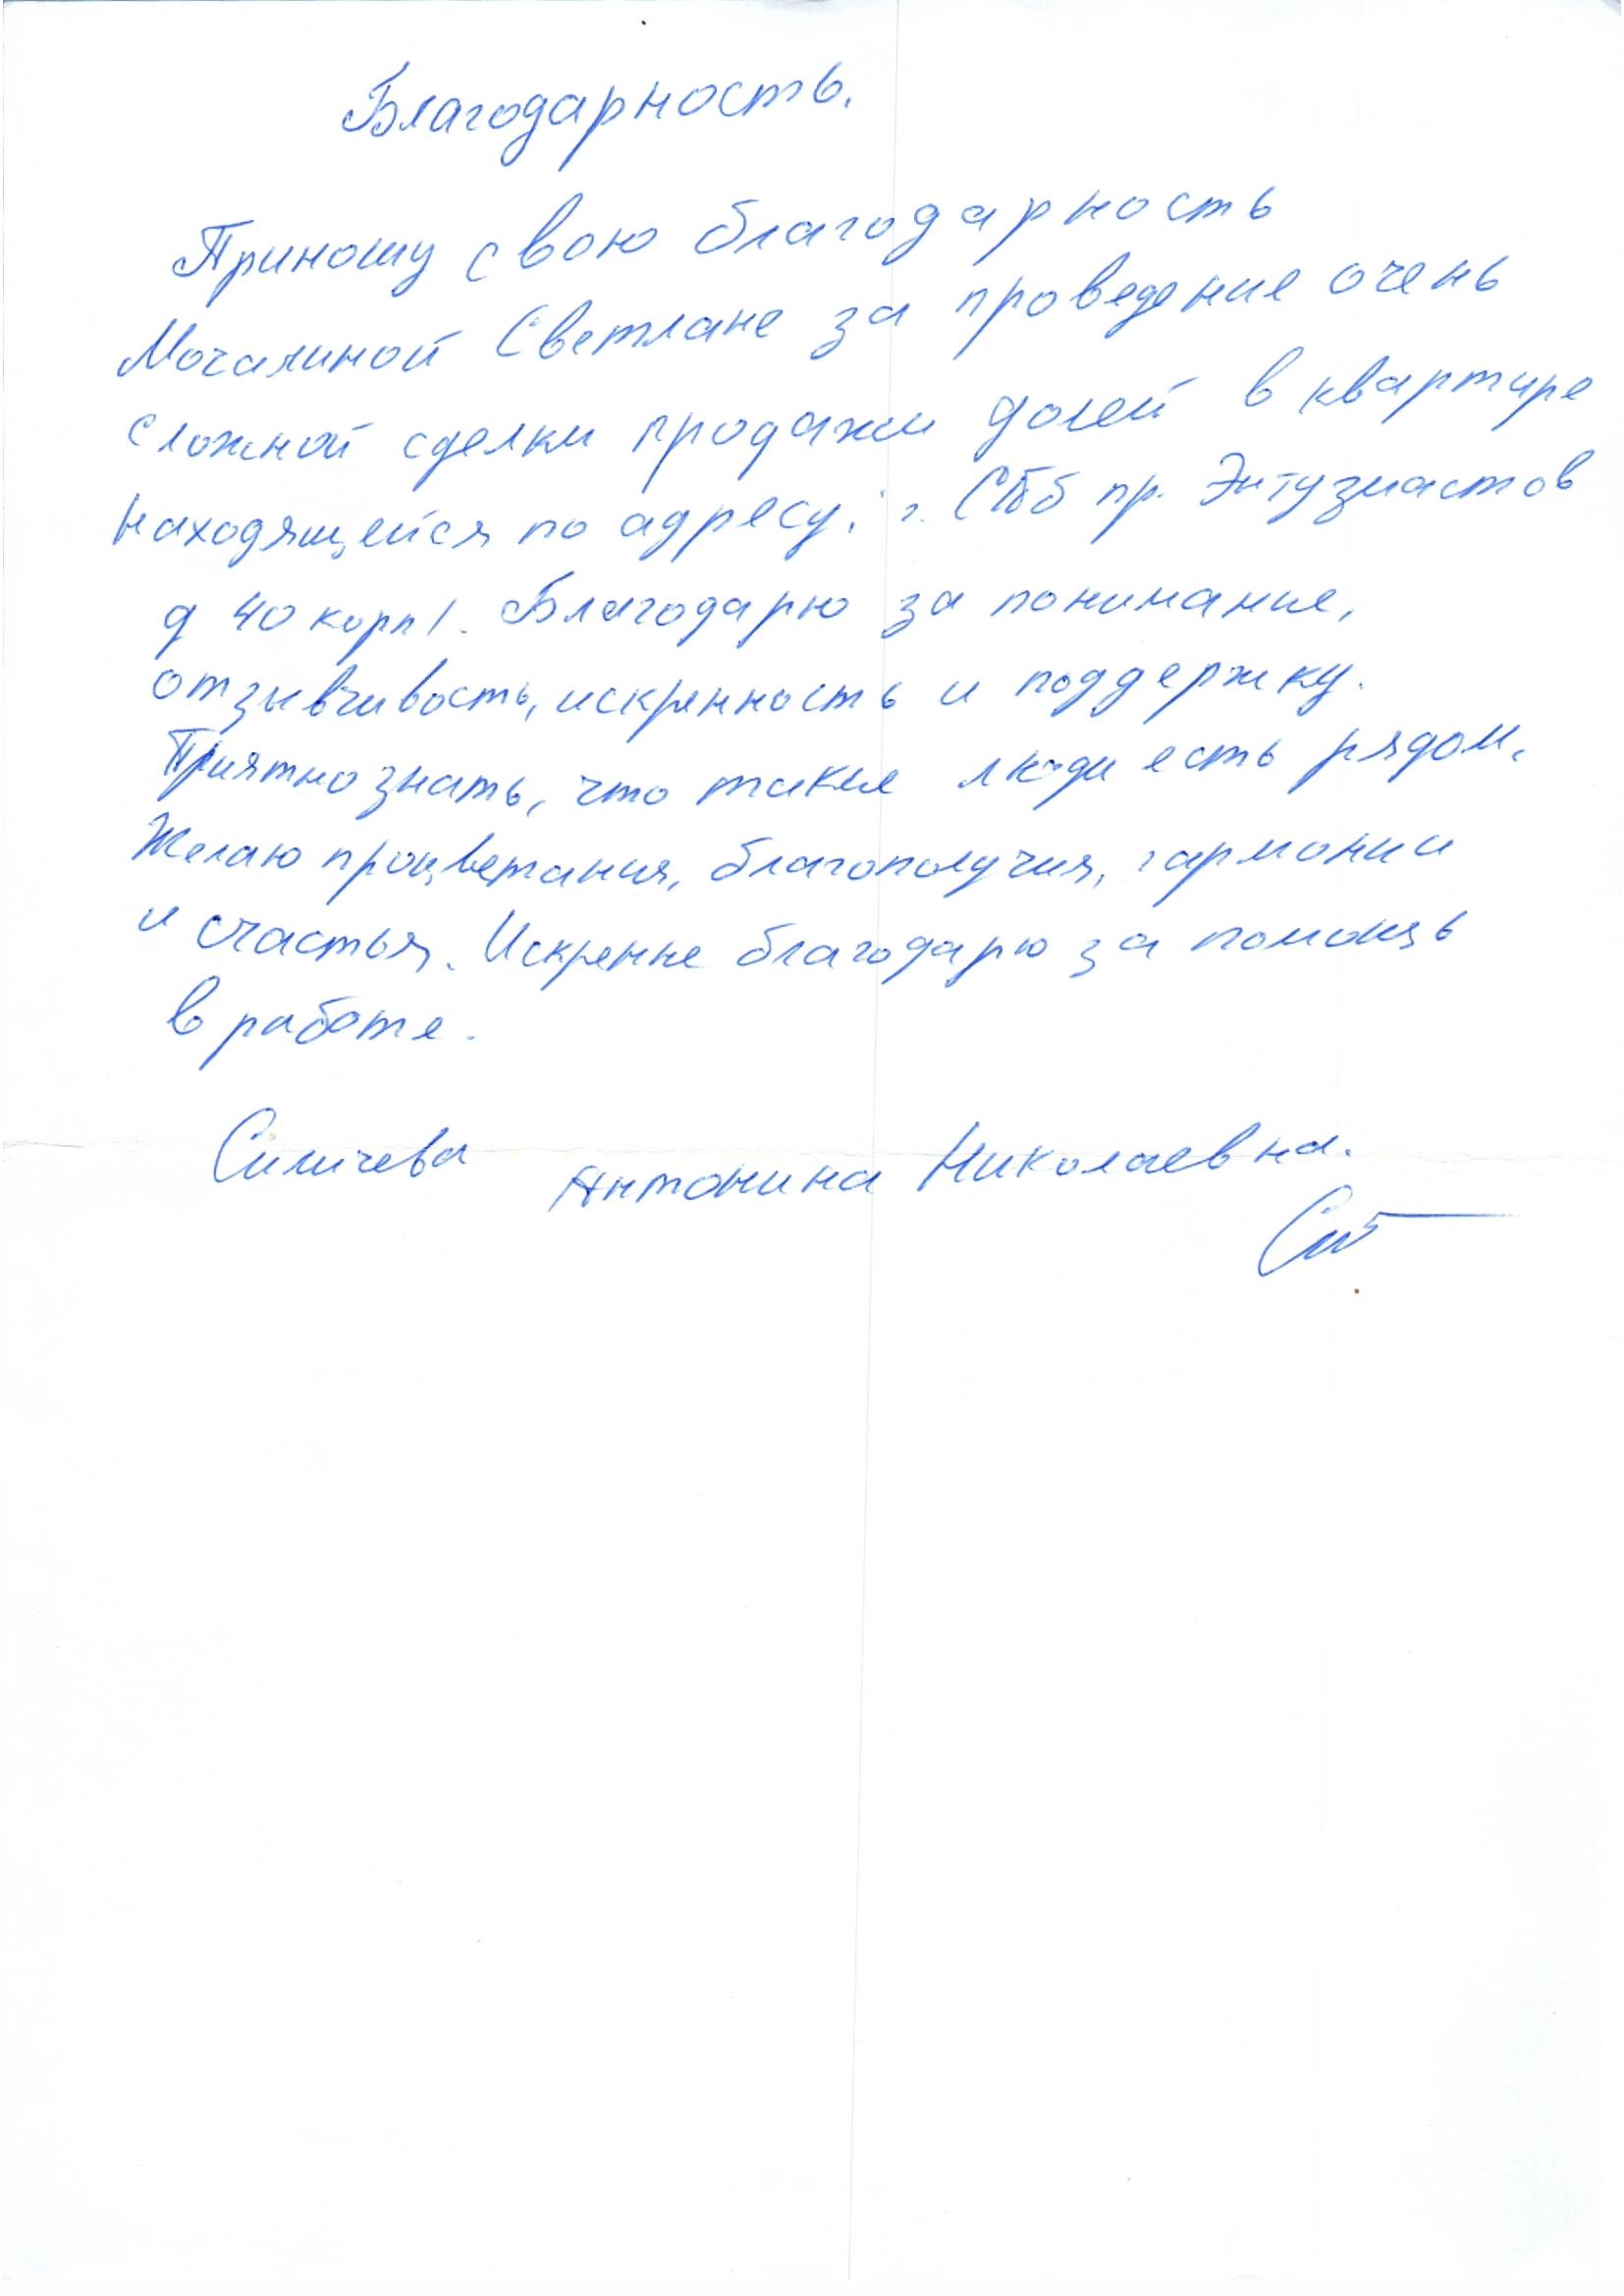 Благодарность.
Приношу свою благодарность
Мочалиной Светлане за проведение очень
сложной сделки продажи долей в квартире
находящейся по адресу: г. СПб пр. Энтузиастов
д 40 корп 1. Благодарю за понимание,
отзывчивость, искренность и поддержку.
Приятно знать, что такие люди есть рядом.
Желаю процветания, благополучия, гармонии
и счастья. Искренне благодарю за помощь
в работе.
Силичева Антонина Николаевна.